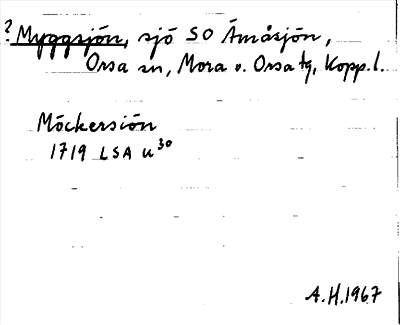 ? Myggsjön, sjö SO Ämåsjön,
Orsa sn, Mora o. Orsa tg, Kopp. l.
Möckersiön
1719 LSA u³⁰
A.H. 1967